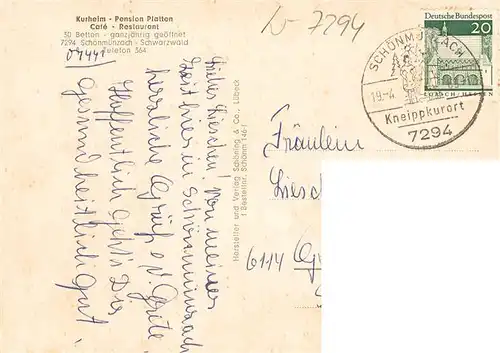 Kurheim - Pension Platten
Café - Restaurant
50 Betten - ganzjährig geöffnet
7294 Schönmünzach - Schwarzwald
Telefon 364
W-7294
Deutsche Bundespost
20
LORSCH/HESSEN
SCHÖNMÜNZACH
19.-4
Kneippkurort
7294
Liebes Lieschen! Von meiner
Zeit hier in Schönmünzach
herzliche Grüße v. Grete
Hoffentlich geht's Dir
Gesundheitlich gut!
Hersteller und Verlag Schöning & Co., Lübeck
Bestellnr. Schönm 146
Fräulein
Liesch
6114 G